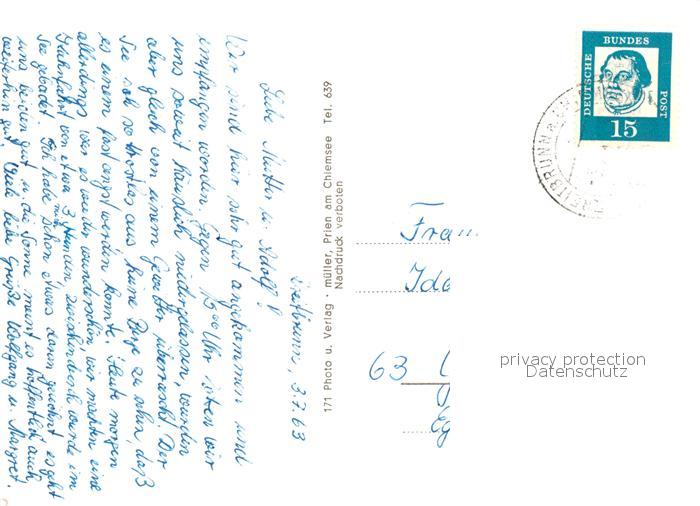 Breitbrunn, 3.7.63
Liebe Mutter u. Adolf!
Wir sind hier sehr gut angekommen und
empfangen worden. Gegen 15⁰⁰ Uhr hatten wir
uns soweit häuslich niedergelassen, wurden
aber gleich von einem Gewitter überrascht. Der
See sah so trostlos aus, keine Berge zu sehen, daß
es einem fast angst werden konnte. Heute morgen
allerdings war es wieder wunderschön, wir machten eine
Kahnfahrt von etwa 3 Stunden, zwischendurch wurde im
See gebadet. Ich habe mich schon etwas daran gewöhnt, es geht
uns beiden gut u. die Sonne meint es hoffentlich auch
weiterhin gut. Viele liebe Grüße Wolfgang u. Margret.
171 Photo u. Verlag · müller, Prien am Chiemsee Tel. 639
Nachdruck verboten
DEUTSCHE
BUNDES
POST
15
BREITBRUNN
Frau
Ida
63
privacy protection
Datenschutz